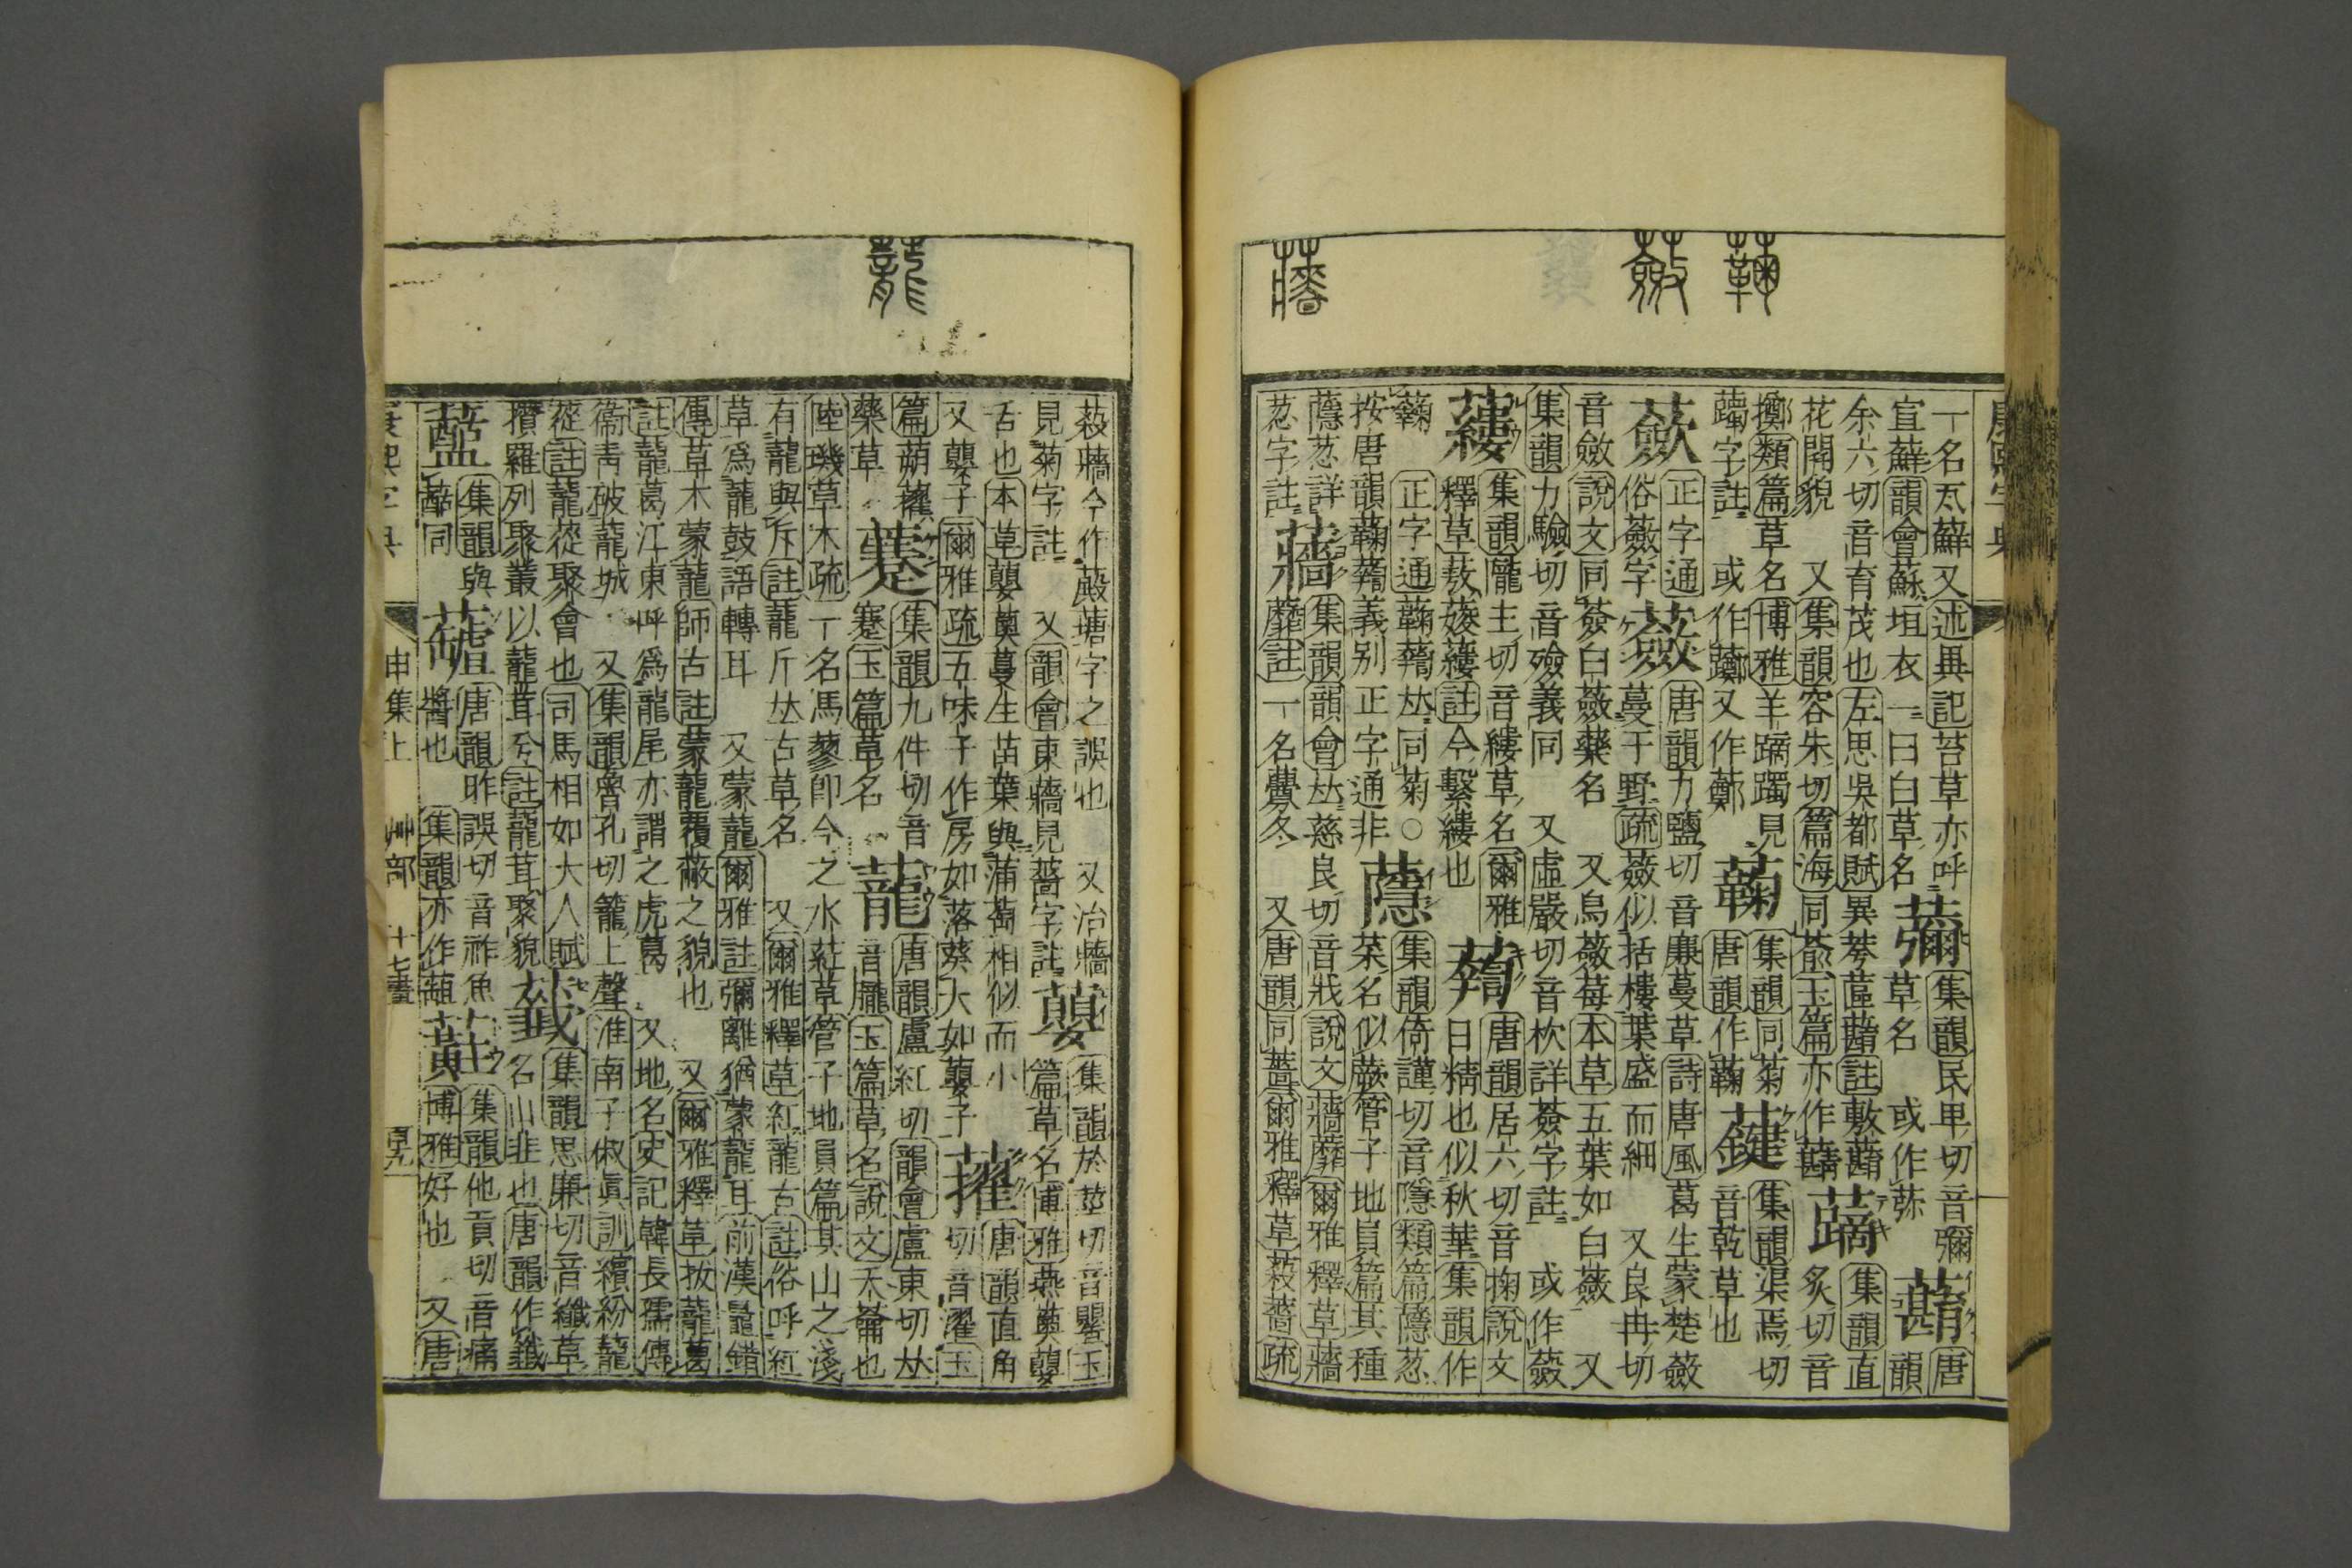 蘜 蘞 蘠
一名瓦蘚又述異記苔草亦呼 集韻民卑切音彌 蘛 唐
宣蘚韻會蘇垣衣一曰白草名 草名 或作 韻
余六切音育茂也左思吳都賦異荂蓲蘛註敷蘛 集韻直
花開貌 又集韻容朱切篇海同 玉篇亦作 炙切音
擲類篇草名博雅羊蹢躅見 蘜 集韻同菊 集韻渠焉切
躅字註 或作 又作 唐韻作蘜 音乾草也
蘝 正字通 蘞 唐韻力鹽切音廉蔓草詩唐風葛生蒙楚蘞
俗蘞字 蔓于野疏蘞似括樓葉盛而細 又良冉切
音斂說文同薟白蘞藥名 又烏蘞莓本草五葉如白蘞 又
集韻力驗切音殮義同 又虛嚴切音杴詳薟字註 或作
集韻隴主切音縷草名爾雅 唐韻居六切音掬說文
釋草蔜 註今繫縷也 日精也似秋華集韻作
蘜 正字通蘜 𠀤同菊○ 蘟 集韻倚謹切音隱類篇蘟荵
按唐韻蘜 義別正字通非 菜名似蕨管子地員篇其種
蘟荵詳 蘠 集韻韻會𠀤慈良切音戕說文蘠蘼爾雅釋草蘠
荵字註 蘼註一名虋冬 又唐韻同薔爾雅釋草菽薔疏
蘢
菽蘠今作 字之誤也 又治蘠 蘡 集韻於莖切音罌玉
見菊字註 又韻會東蘠見薔字註 篇草名博雅燕薁蘡
舌也本草蘡薁蔓生苗葉與蒲萄相似而小 唐韻直角
又蘡子爾雅疏五味子作房如落葵大如蘡子 切音濯玉
篇蒴 集韻九件切音 蘢 唐韻盧紅切韻會盧東切𠀤
藥草 蹇玉篇草名 音朧玉篇草名說文天蘥也
陸璣草木疏一名馬蓼卽今之水葒草管子地員篇其山之淺
有蘢與斥註蘢斤𠀤古草名 又爾雅釋草紅蘢古註俗呼紅
草爲蘢鼓語轉耳 又蒙蘢爾雅註彌離猶蒙蘢耳前漢鼂錯
傳草木蒙蘢師古註蒙蘢覆蔽之貌也 又爾雅釋草拔蘢葛
註蘢葛江東呼爲龍尾亦謂之虎葛 又地名史記韓長孺傳
衞靑破蘢城 又集韻魯孔切籠上聲淮南子俶眞訓繽紛蘢
蓯註蘢蓯聚會也司馬相如大人賦 集韻思廉切音纖草
攢羅列聚叢以蘢茸兮註蘢茸聚貌 名山韭也唐韻作
集韻與 唐韻昨誤切音祚魚 集韻他貢切音痛
同 醬也 集韻亦作 博雅好也 又唐
康熙字典 申集上 艸部 十七畫